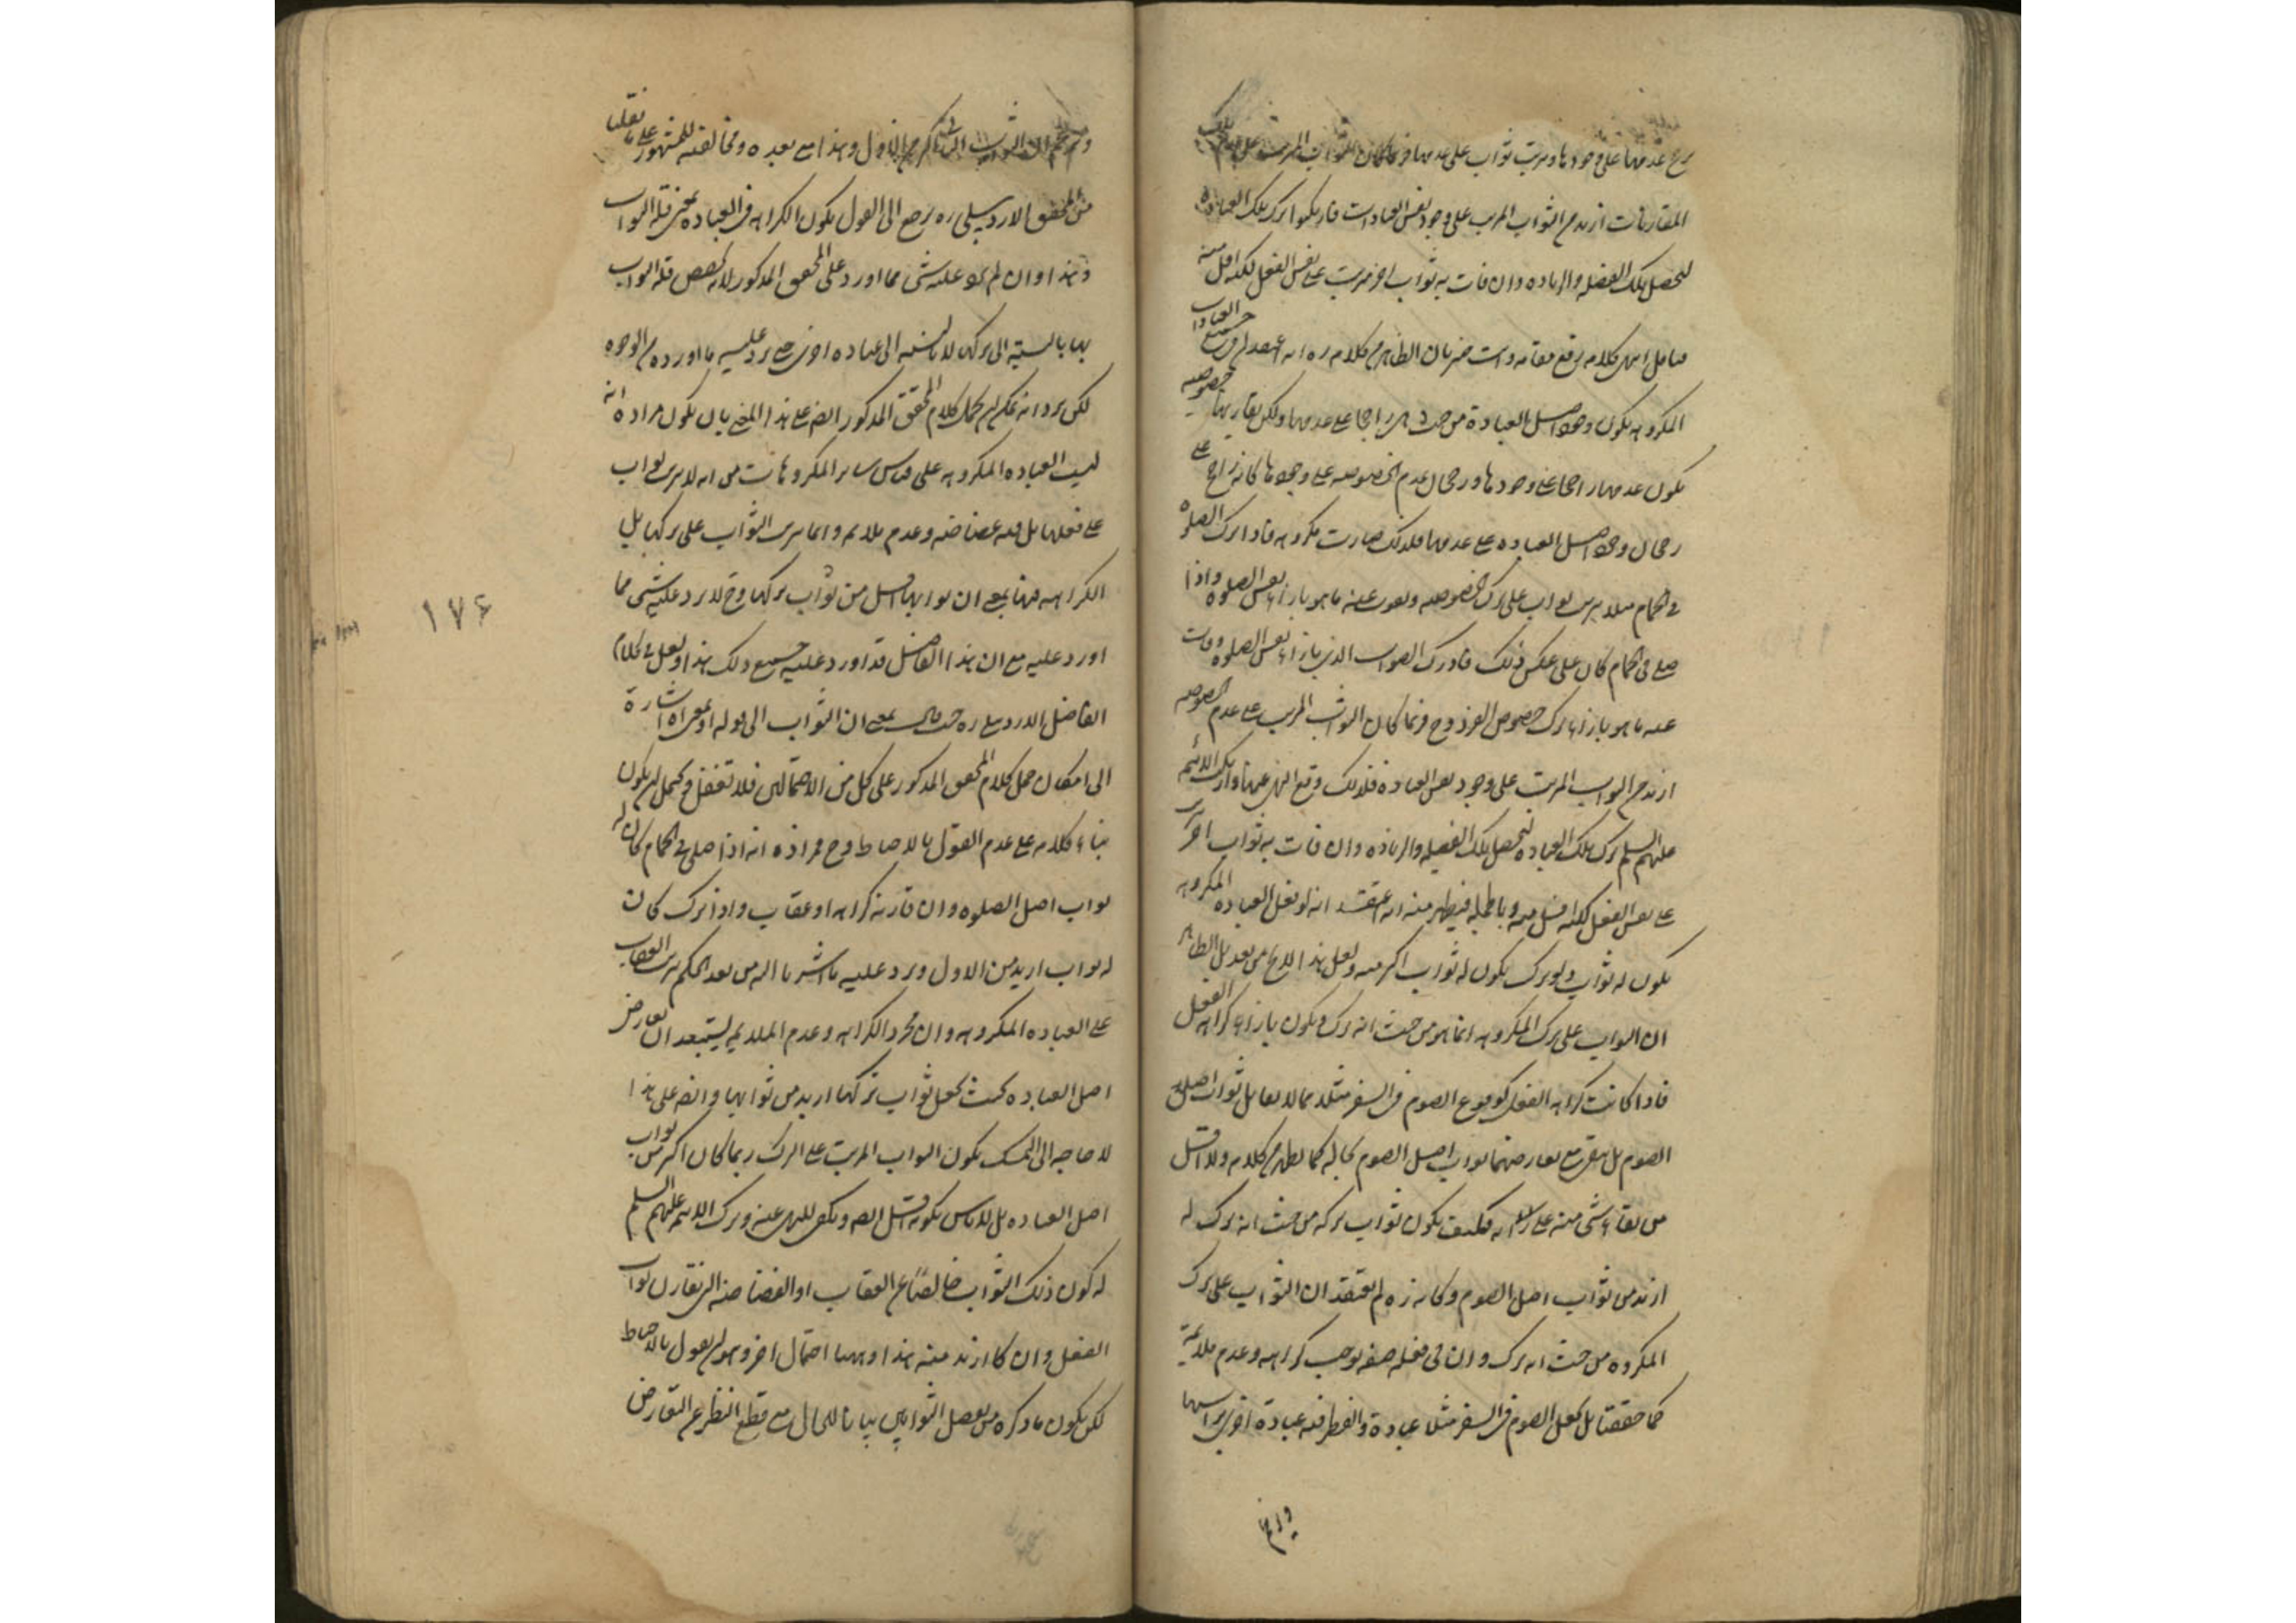 عدمها على وجودها وترتب ثواب على عدمها وربما كان الثواب المرتب على
المقارنات ازيد من الثواب المرتب على وجود نفس العبادات فاريكموا ترك تلك العبادة
لتحصل تلك الفضيلة والزيادة وان فات به ثواب اخر مرتب على نفس الفعل لكنه اقل منه
كلامه رفع مقامه وانت خبير بان الظاهر من كلامه ره انه جميع العبادات
المكروهه يكون وجود اصل العبادة من حيث هى راجحا على عدمها ولكن يقارنها خصوصيه
يكون عدمها راجحا على وجودها ورجحان عدم الخصوصيه على وجودها كانه راجح على
رجحان وجود اصل العباده على عدمها فلذلك صارت مكروهه فاذا ترك الصلوه
فى الحمام مثلا يترتب ثواب على ترك الخصوصيه ويفوت عنه ما هو بازاء نفس الصلوه واذا
صلى فى الحمام كان على عكس ذلك فادرك الثواب الذى بازاء نفس الصلوه وفات
عنه ما هو بازاء ترك خصوص الفرد وح فربما كان الثواب المرتب على عدم الخصوصيه
ازيد من الثواب المرتب على وجود نفس العبادة فلذلك وقع النهى عنها وترك الائمه
عليهم السلم ترك تلك العباده لتحصل تلك الفضيله والزياده وان فات به ثواب اخر ترتب
على نفس الفعل لكنه اقل منه وبالجمله فيظهر منه انه يعتقد انه لو فعل العبادة المكروهه
يكون له ثواب ولو ترك يكون له ثواب اكثر منه ولعل هذا لا يخ من بعد بل الظاهر
ان الثواب على ترك المكروه انما هو من حيث انه ترك ويكون بازاء كراهه الفعل
فاذا كانت كراهه الفعل كوقوع الصوم فى السفر مثلا مما لا يقابل ثواب اصل
الصوم بل يبقى مع تعارضهما ثواب اصل الصوم بحاله كما يظهر من كلامه ولا اقل
من بقاء شى منه على فكيف يكون ثواب تركه من حيث انه ترك له
ازيد من ثواب اصل الصوم وكانه ره لم يعتقد ان الثواب على ترك
المكروه من حيث انه ترك وان فى فعله صفه توجب كراهه وعدم ملايمه
كما حققنا بل يجعل الصوم فى السفر مثلا عبادة والفطر فيه عبادة اخرى براسها
الثواب اكثر من الاول وهذا مع بعده ومخالفته للمشهور على ما نقلنا
من المحقق الاردبيلى ره يرجع الى القول بكون الكراهه فى العباده بمعنى قلة الثواب
وهذا وان لم يرد عليه شى مما اورد على المحقق المذكور لانه يخصص قله الثواب
بها بالنسبه الى تركها لا بالنسبه الى عباده اخرى حتى يرد عليه ما اورده من الوجوه
لكن يرد انه يمكن حمل كلام المحقق المذكور ايضا على هذا المعنى بان يكون مراده انه
ليست العباده المكروهه على قياس ساير المكروهات من انه لا يترتب ثواب
على فعلها بل فيه غضاضه وعدم ملايمه وانما يترتب الثواب على تركها بل
الكراهه فيها بمعنى ان ثوابها اقل من ثواب تركها وح لا يرد عليه شى مما
اورد عليه مع ان هذا الفاضل قد اورد عليه جميع ذلك هذا ولعل فى كلام
الفاضل الاردبيلى ره حيث قال بمعنى ان الثواب الى قوله او بمعنى اه اشارة
الى امكان حمل كلام المحقق المذكور على كل من الاحتمالين فلا تغفل ويحتمل ان يكون
بناء كلامه على عدم القول بالاحباط وح مراده انه اذا صلى فى الحمام كان له
ثواب اصل الصلوه وان قارنه كراهه او عقاب واذا ترك كان
له ثواب ازيد من الاول ويرد عليه ما اشرنا اليه من بعد الحكم بترتب العقاب
على العباده المكروهه وان مجرد الكراهه وعدم الملايمه يستبعد ان يعارض
اصل العباده بحيث يجعل ثواب تركها ازيد من ثوابها وايضا على هذا
لا حاجه الى التمسك بكون الثواب المرتب على الترك ربما كان اكثر من ثواب
اصل العباده بل لا باس بكونه اقل ايضا ويكفى للنهى عنه وترك الائمه عليهم السلم
له كون ذلك الثواب خالصا عن العقاب او الغضاضه التى تقارن ثواب
الفعل وان كان ازيد منه هذا وههنا احتمال اخر وهو ان يقول بالاحباط
لكن يكون ما ذكره من تفصيل الثوابين بيانا للحال مع قطع النظر عن التعارض
۱۷۶